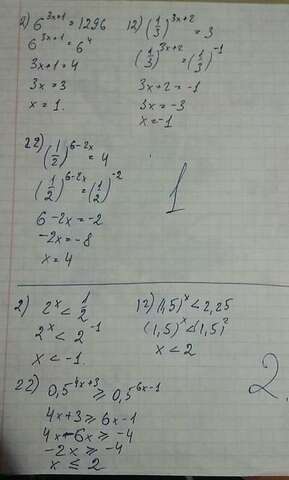 2) 6^{3x+1} = 1296
6^{3x+1} = 6^4
3x+1 = 4
3x = 3
x = 1.
12) (1/3)^{3x+2} = 3
(1/3)^{3x+2} = (1/3)^{-1}
3x+2 = -1
3x = -3
x = -1
22) (1/2)^{6-2x} = 4
(1/2)^{6-2x} = (1/2)^{-2}
6-2x = -2
-2x = -8
x = 4
1
2) 2^x < 1/2
2^x < 2^{-1}
x < -1.
12) (1,5)^x < 2,25
(1,5)^x < (1,5)^2
x < 2
22) 0,5^{4x+3} ≥ 0,5^{6x-1}
4x+3 ≥ 6x-1
4x-6x ≥ -4
-2x ≥ -4
x ≤ 2
2.